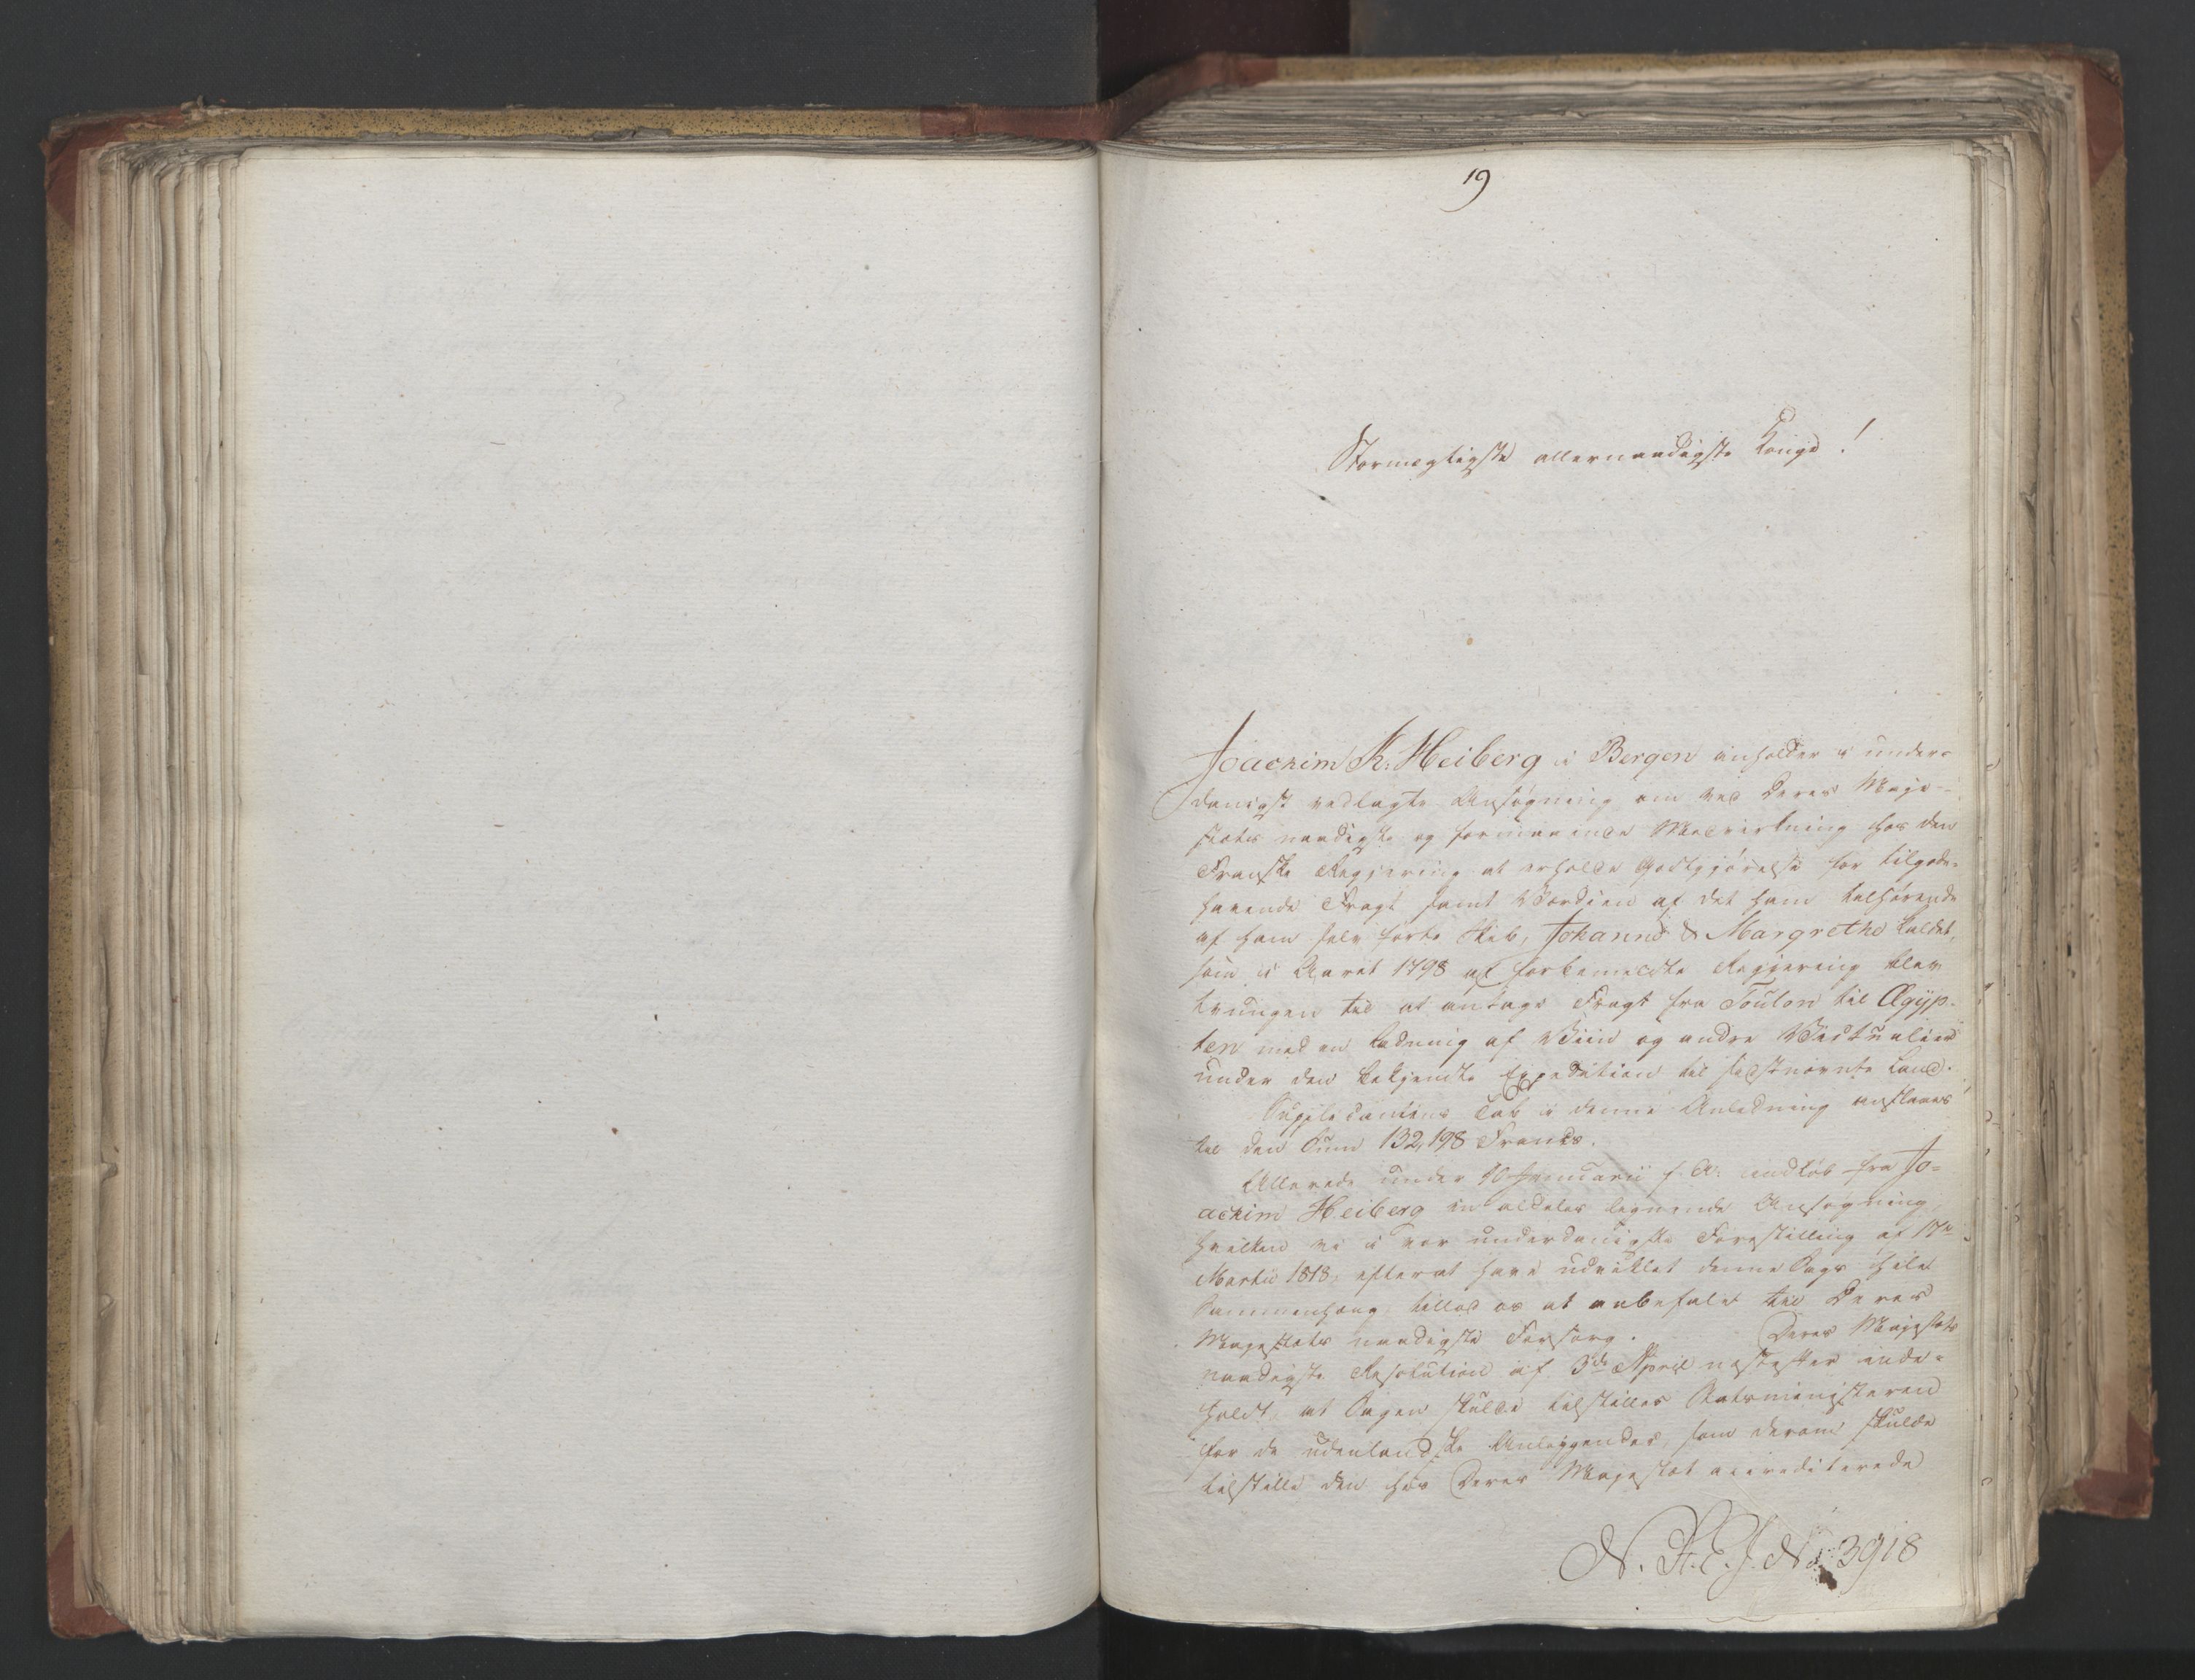 19
Stormægtigste allernaadigste Konge!
Joachim K: Heiberg i Bergen anholder i under=
danigst vedlagte Ansøgning om ved Deres Maje=
stæts naadigste og formaaende Medvirkning hos den
Franske Regjering at erholde Godtgjørelse for tilgode=
havende Fragt samt Værdien af det ham tilhørende
af ham selv førte Skib, Johanne & Margrethe kaldet,
som i Aaret 1798 af forbemeldte Regjering blev
tvungen til at antage Fragt fra Toulon til Ægyp=
ten med en Ladning af Viin og andre Victualier
under den bekjendte Expedition til sidstnævnte Land.
Supplicantens Tab i denne Anledning anslaaes
til den Sum 132,198 Francs.
Allerede under 10 Januarii f. A: indløb fra Jo=
achim Heiberg en aldeles lignende Ansøgning,
hvilken vi i vor underdanigste Forestilling af 17de
Martii 1818, efter at have udviklet denne Sags hele
Sammenhæng tillod os at anbefale til Deres
Majestæts naadigste Forsorg. Deres Majestæts
naadigste Resolution af 3die April næstefter inde=
holdt, at Sagen skulde tilstilles Statsministeren
for de udenlandske Anliggender, som derom skulde
tilstille den hos Deres Majestæt accrediterede
N. H. E. J. No 3918